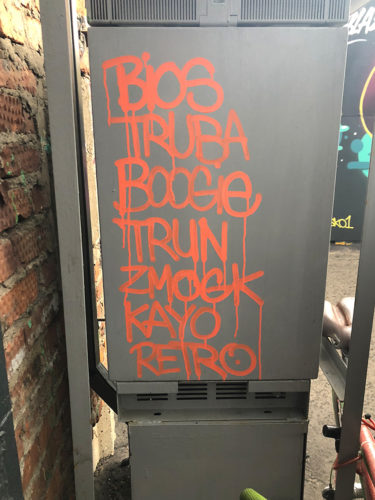 BiOS
TRUBA
BOOGiE
TRUN
ZMOGK
KAYO
RETRO